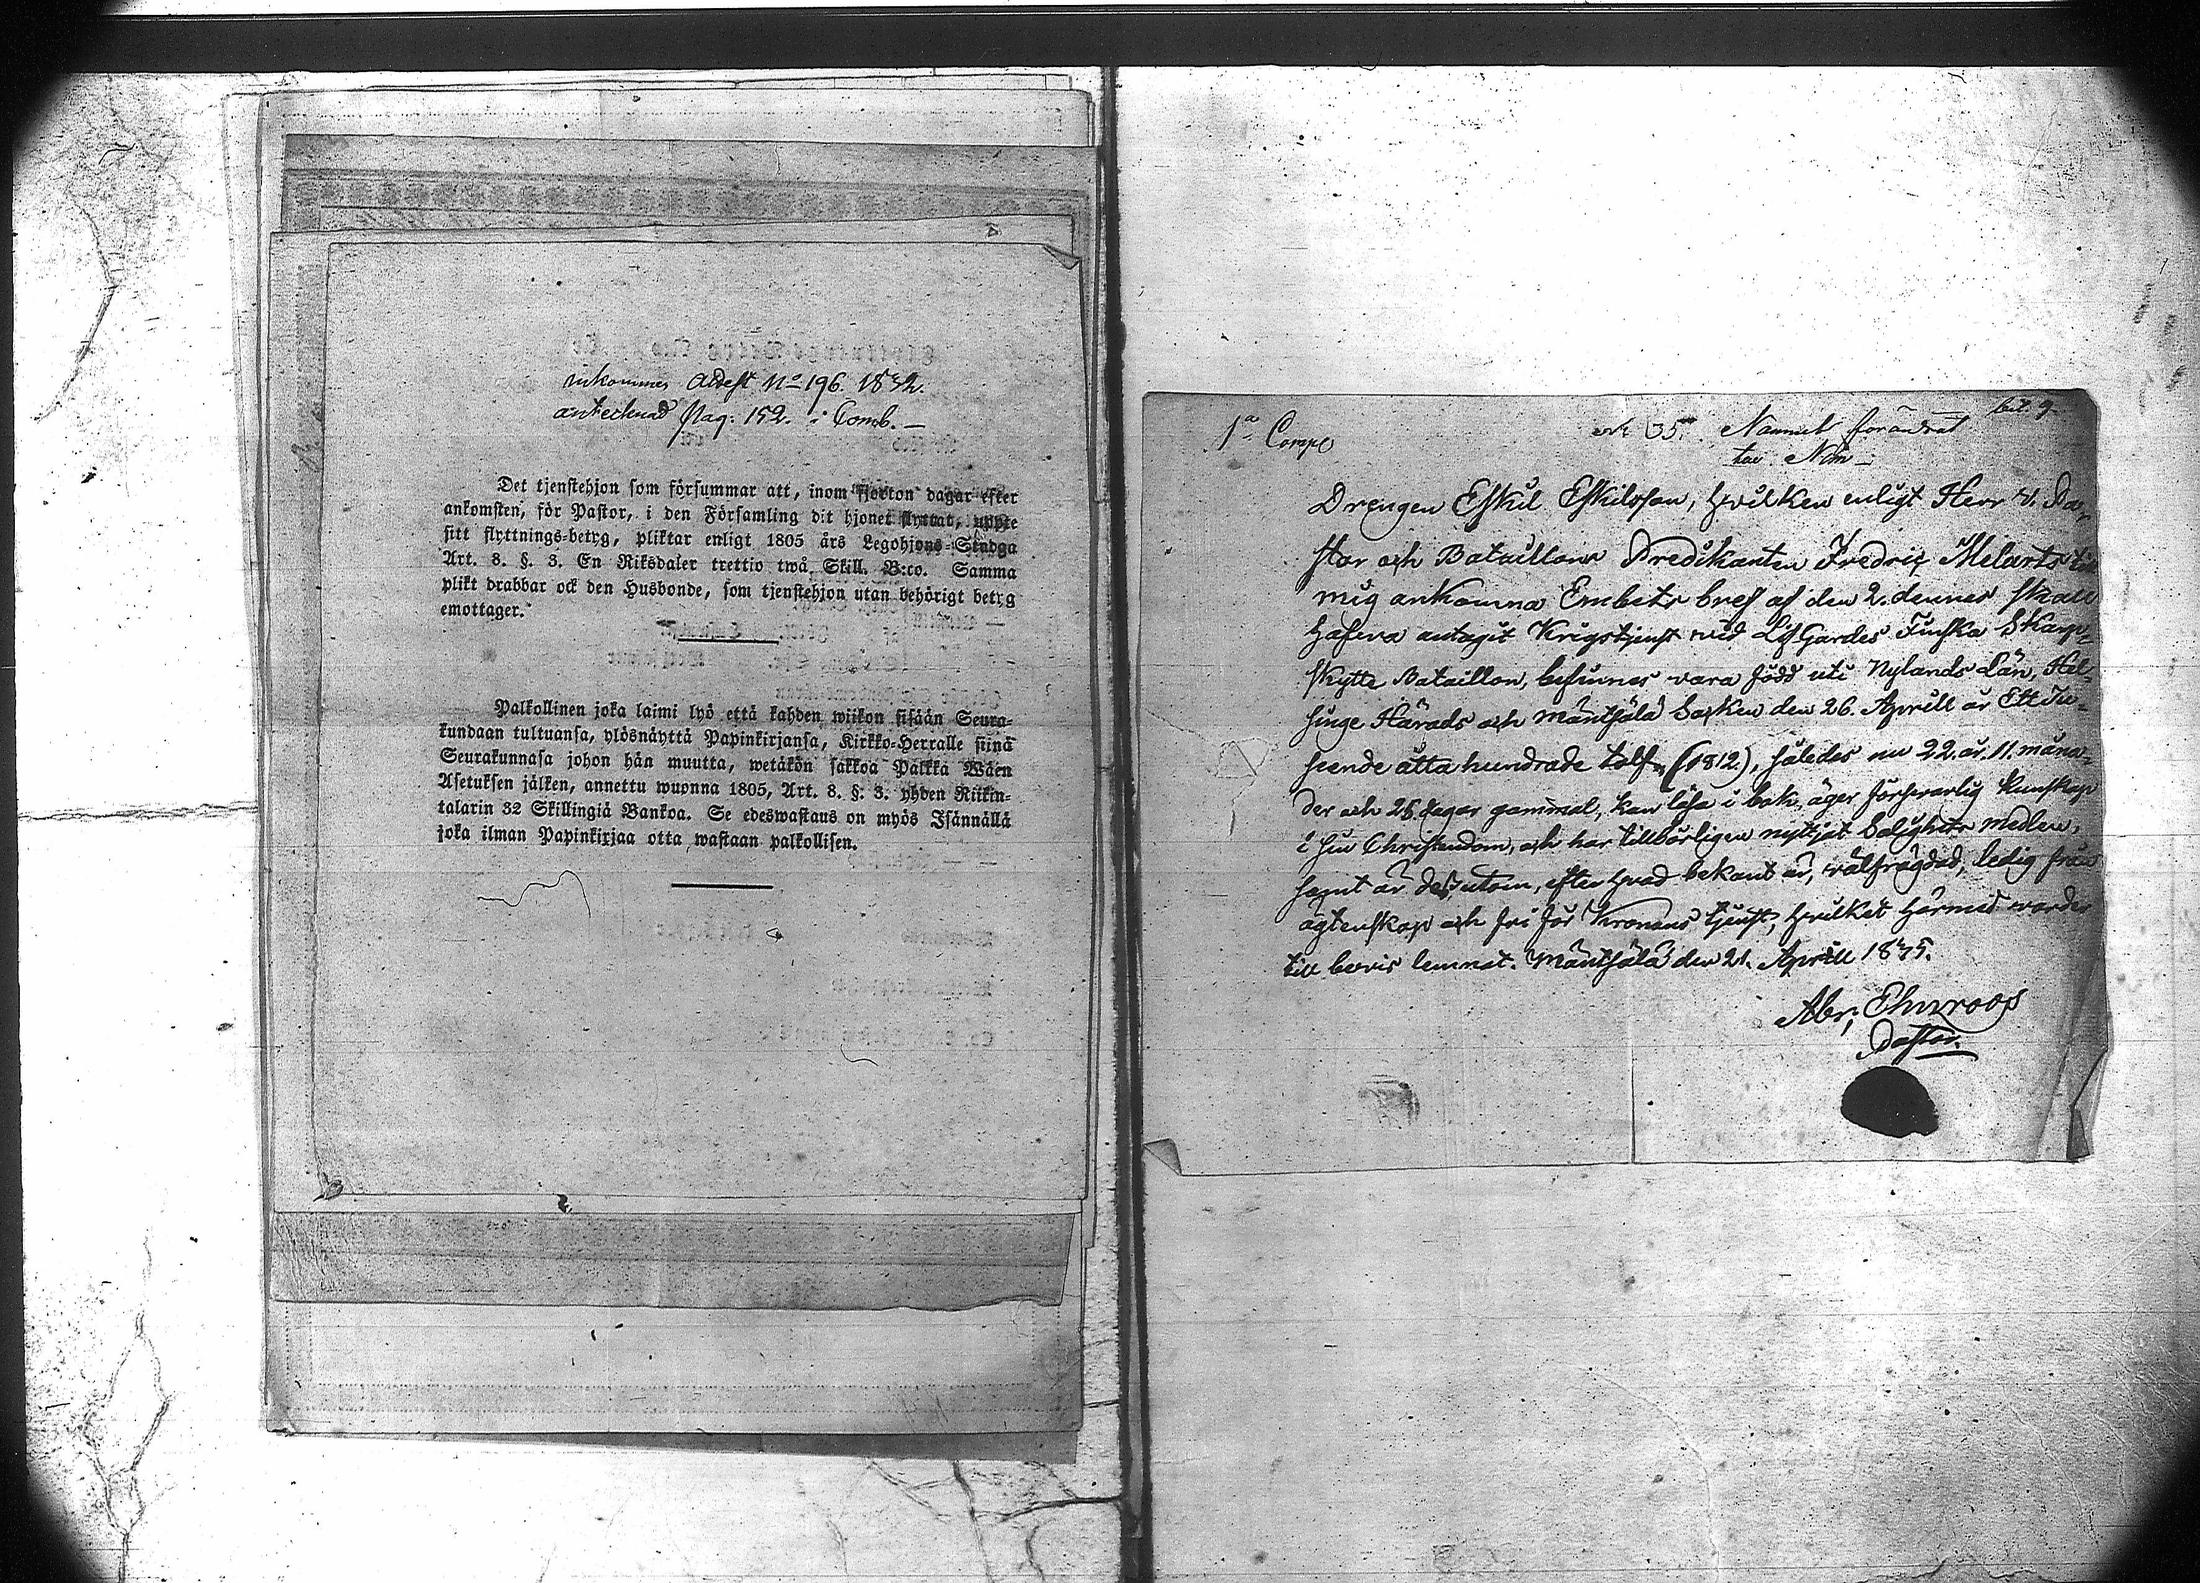 inkommen Attest No 196. 1832.
antecknad pag: 152. i Comb. —
Det tjenstehjon som försummar att, inom fjorton dagar efter
ankomsten, för Pastor, i den Församling dit hjonet flyttat, uppte
sitt flyttnings-betyg, pliktar enligt 1805 års Legohjons-Stadga
Art. 8. §. 3. En Riksdaler trettio twå Skill. B:co. Samma
plikt drabbar ock den Husbonde, som tjenstehjon utan behörigt betyg
emottager.
Palkollinen joka laimi lyö että kahden wiikon sisään Seura-
kundaan tultuansa, ylösnäyttä Papinkirjansa, Kirkko-Herralle siinä
Seurakunnasa johon hän muutta, wetäkön sakkoa Palkka Wäen
Asetuksen jälken, annettu wuonna 1805, Art. 8. §. 3. yhden Riikin-
talarin 32 Skillingiä Bankoa. Se edeswastaus on myös Isännällä
joka ilman Papinkirjaa otta wastaan palkollisen.
bil. 9.
1a Comp
No 35. Namnet förändrat
Drengen Eskil Eskilsson, hvilken enligt Herr v. Pa-
stor och Bataillons Predikanten Fredric Melarts til
mig ankomna Embets bref af den 2. dennes skall
hafva antagit Krigstjenst vid Lif Gardes Finska Skarp-
skytte Bataillon, befinnes vara född uti Nylands Län, Hel-
singe Härads och Mäntsälä Socken den 26. Aprill år Ett Tu-
sende åtta hundrade tolf, (1812), således nu 22. år. 11. måna-
der och 25. dagar gammal, kan läsa i bok, äger försvarlig kunskap
i sin Christendom, och har tillbörligen nyttjat Salighets medlen,
samt är dessutom, efter hvad bekant är, välfrägdad, ledig från
ägtenskap och fri för Kronans tjenst, hvilket härmed varder
till bevis lemnat. Mäntsälä den 21. Aprill 1835.
Abr; Ehnroos
Pastor.